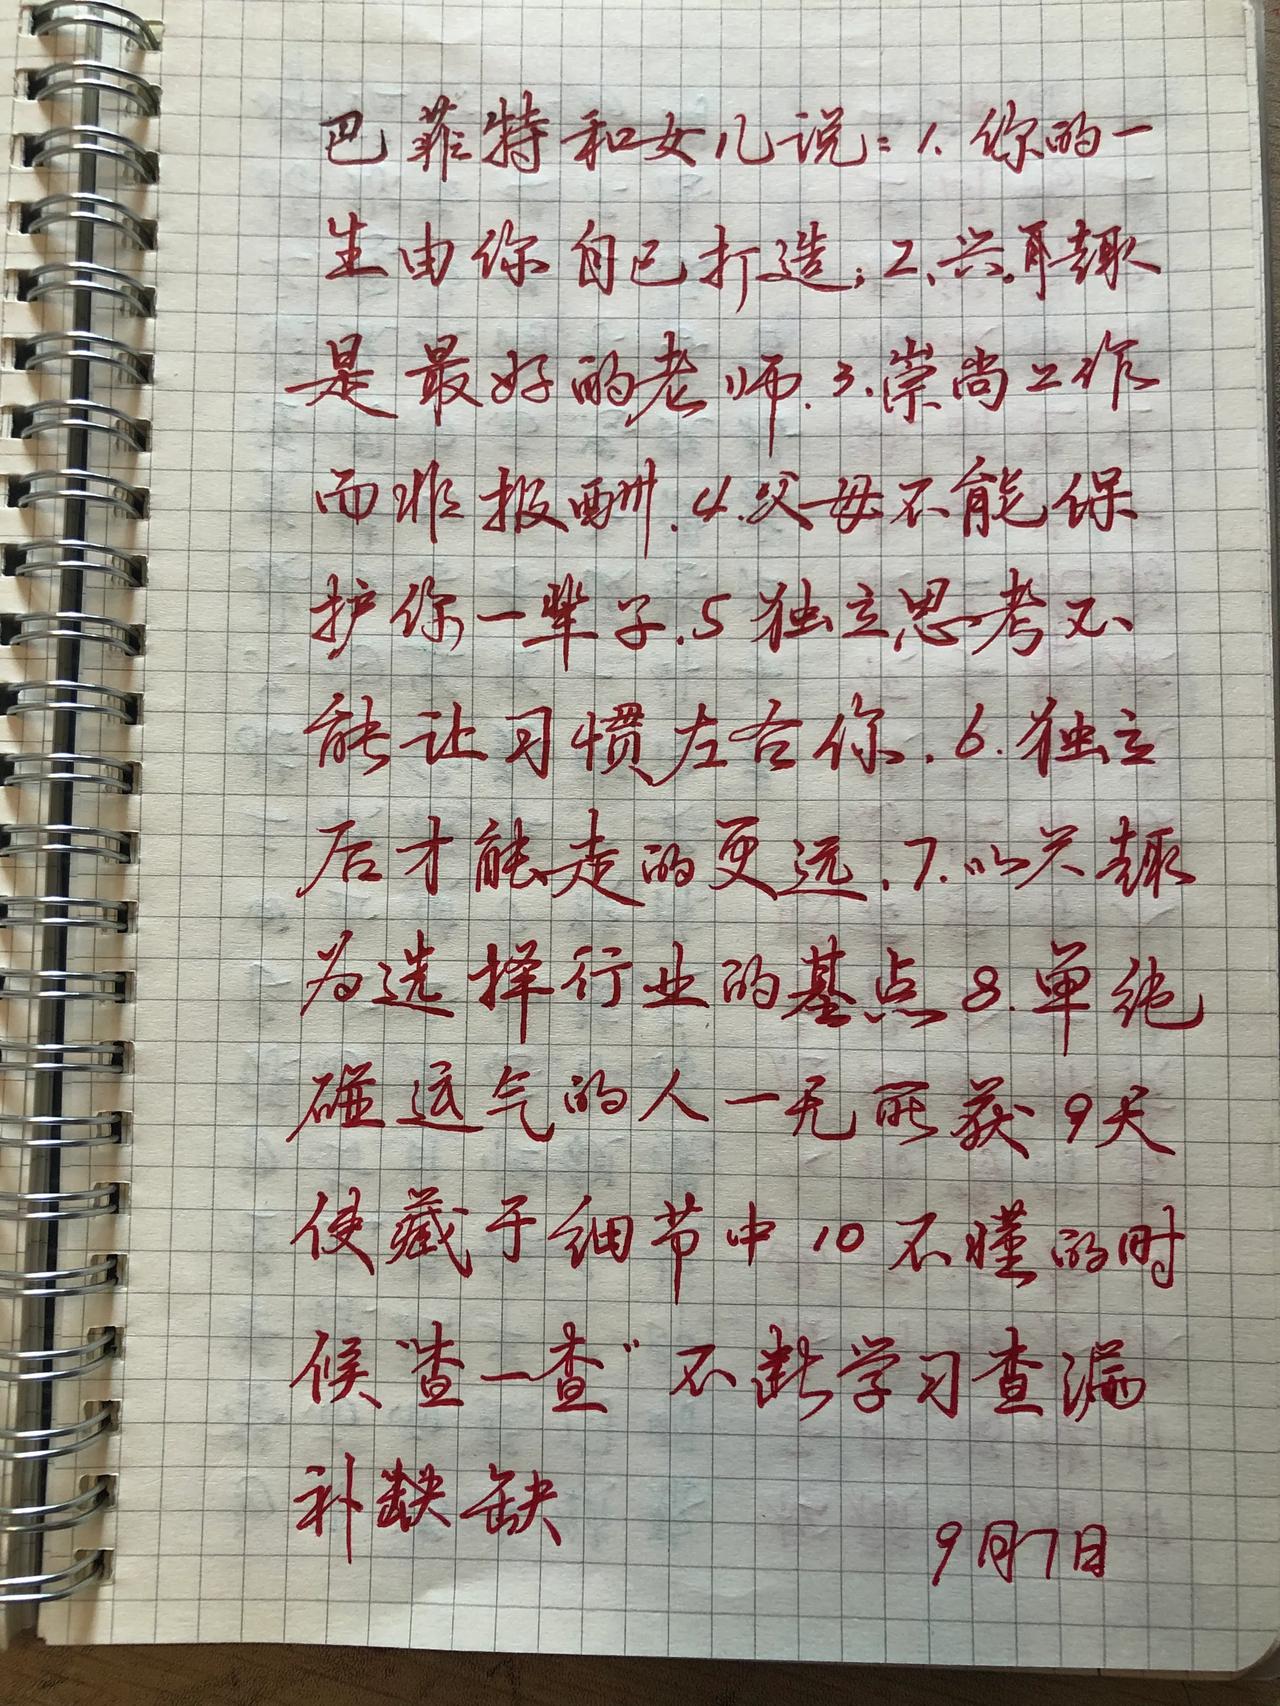 巴菲特和女儿说：1.你的一
生由你自己打造；2、兴趣
是最好的老师.3.崇尚工作
而非报酬.4.父母不能保
护你一辈子.5独立思考不
能让习惯左右你.6.独立
后才能走的更远.7.以兴趣
为选择行业的基点8.单纯
碰运气的人一无所获9天
使藏于细节中10不懂的时
候“查一查”不断学习查漏
补缺
9月7日